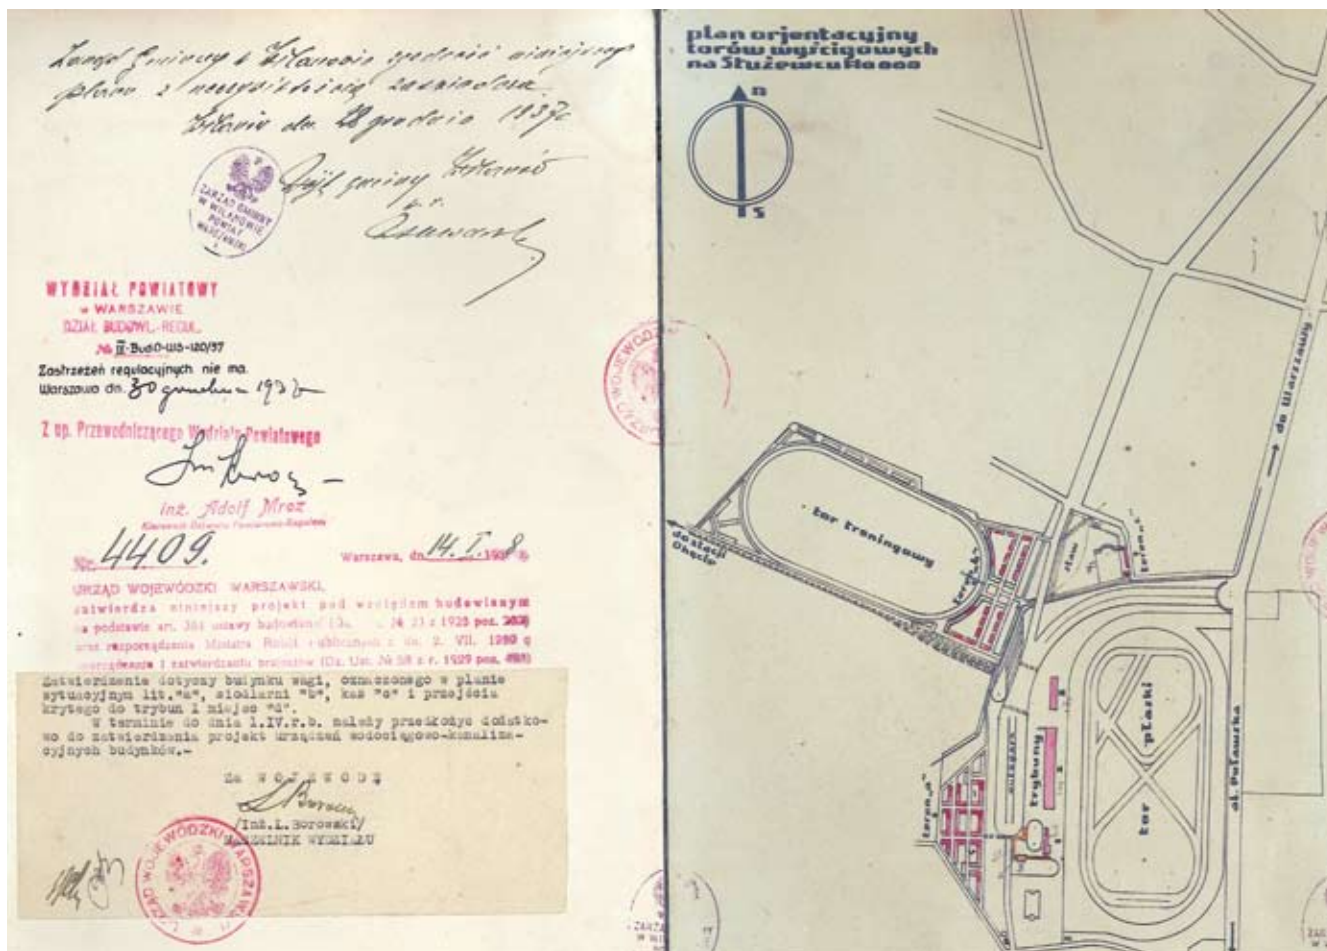 Zarząd Gminny w Wilanowie zgodność niniejszego
planu z rzeczywistością zaświadcza.
Wilanów dn. 28 grudnia 1937 r.
Wójt gminy Wilanów
ZARZĄD GMINNY
W WILANOWIE
POWIAT
WARSZAWSKI
WYDZIAŁ POWIATOWY
w WARSZAWIE
DZIAŁ BUDOWL.-REGUL.
№ III-Bud-0-U13-120/37
Zastrzeżeń regulacyjnych nie ma.
Warszawa dn. 30 grudnia 1937
Z up. Przewodniczącego Wydziału Powiatowego
Inż. Adolf Mroz
Nr. 4409.
Warszawa, dn. 14. I. 1938 r.
URZĄD WOJEWÓDZKI WARSZAWSKI,
zatwierdza niniejszy projekt pod względem budowlanym
na podstawie art. 361 ustawy budowlanej № 23 z 1928 poz. 202
oraz rozporządzenia Ministra Robót Publicznych z dn. 2. VII. 1929 o
sporządzaniu i zatwierdzaniu projektów (Dz. Ust. № 58 z r. 1929 poz.
Zatwierdzenie dotyczy budynku wagi, oznaczonego w planie
sytuacyjnym lit."a", siodlarni "b", kas "c" i przejścia
krytego do trybun I miejsc "d".
W terminie do dnia 1.IV.r.b. należy przedłożyć dodatko-
wo do zatwierdzenia projekt urządzeń wodociągowo-kanaliza-
cyjnych budynków.-
Za WOJEWODĘ
/Inż.L.Borowski/
NACZELNIK WYDZIAŁU
URZĄD WOJEWÓDZKI WARSZAWSKI
plan orjentacyjny
torów wyścigowych
na Służewcu 1:10 000
n
s
do Warszawy
tor treningowy
do stacji
Okęcie
staw
teren "b"
teren "c"
teren "a"
trybuny
tor płaski
al. Puławska
URZĄD WOJEWÓDZKI